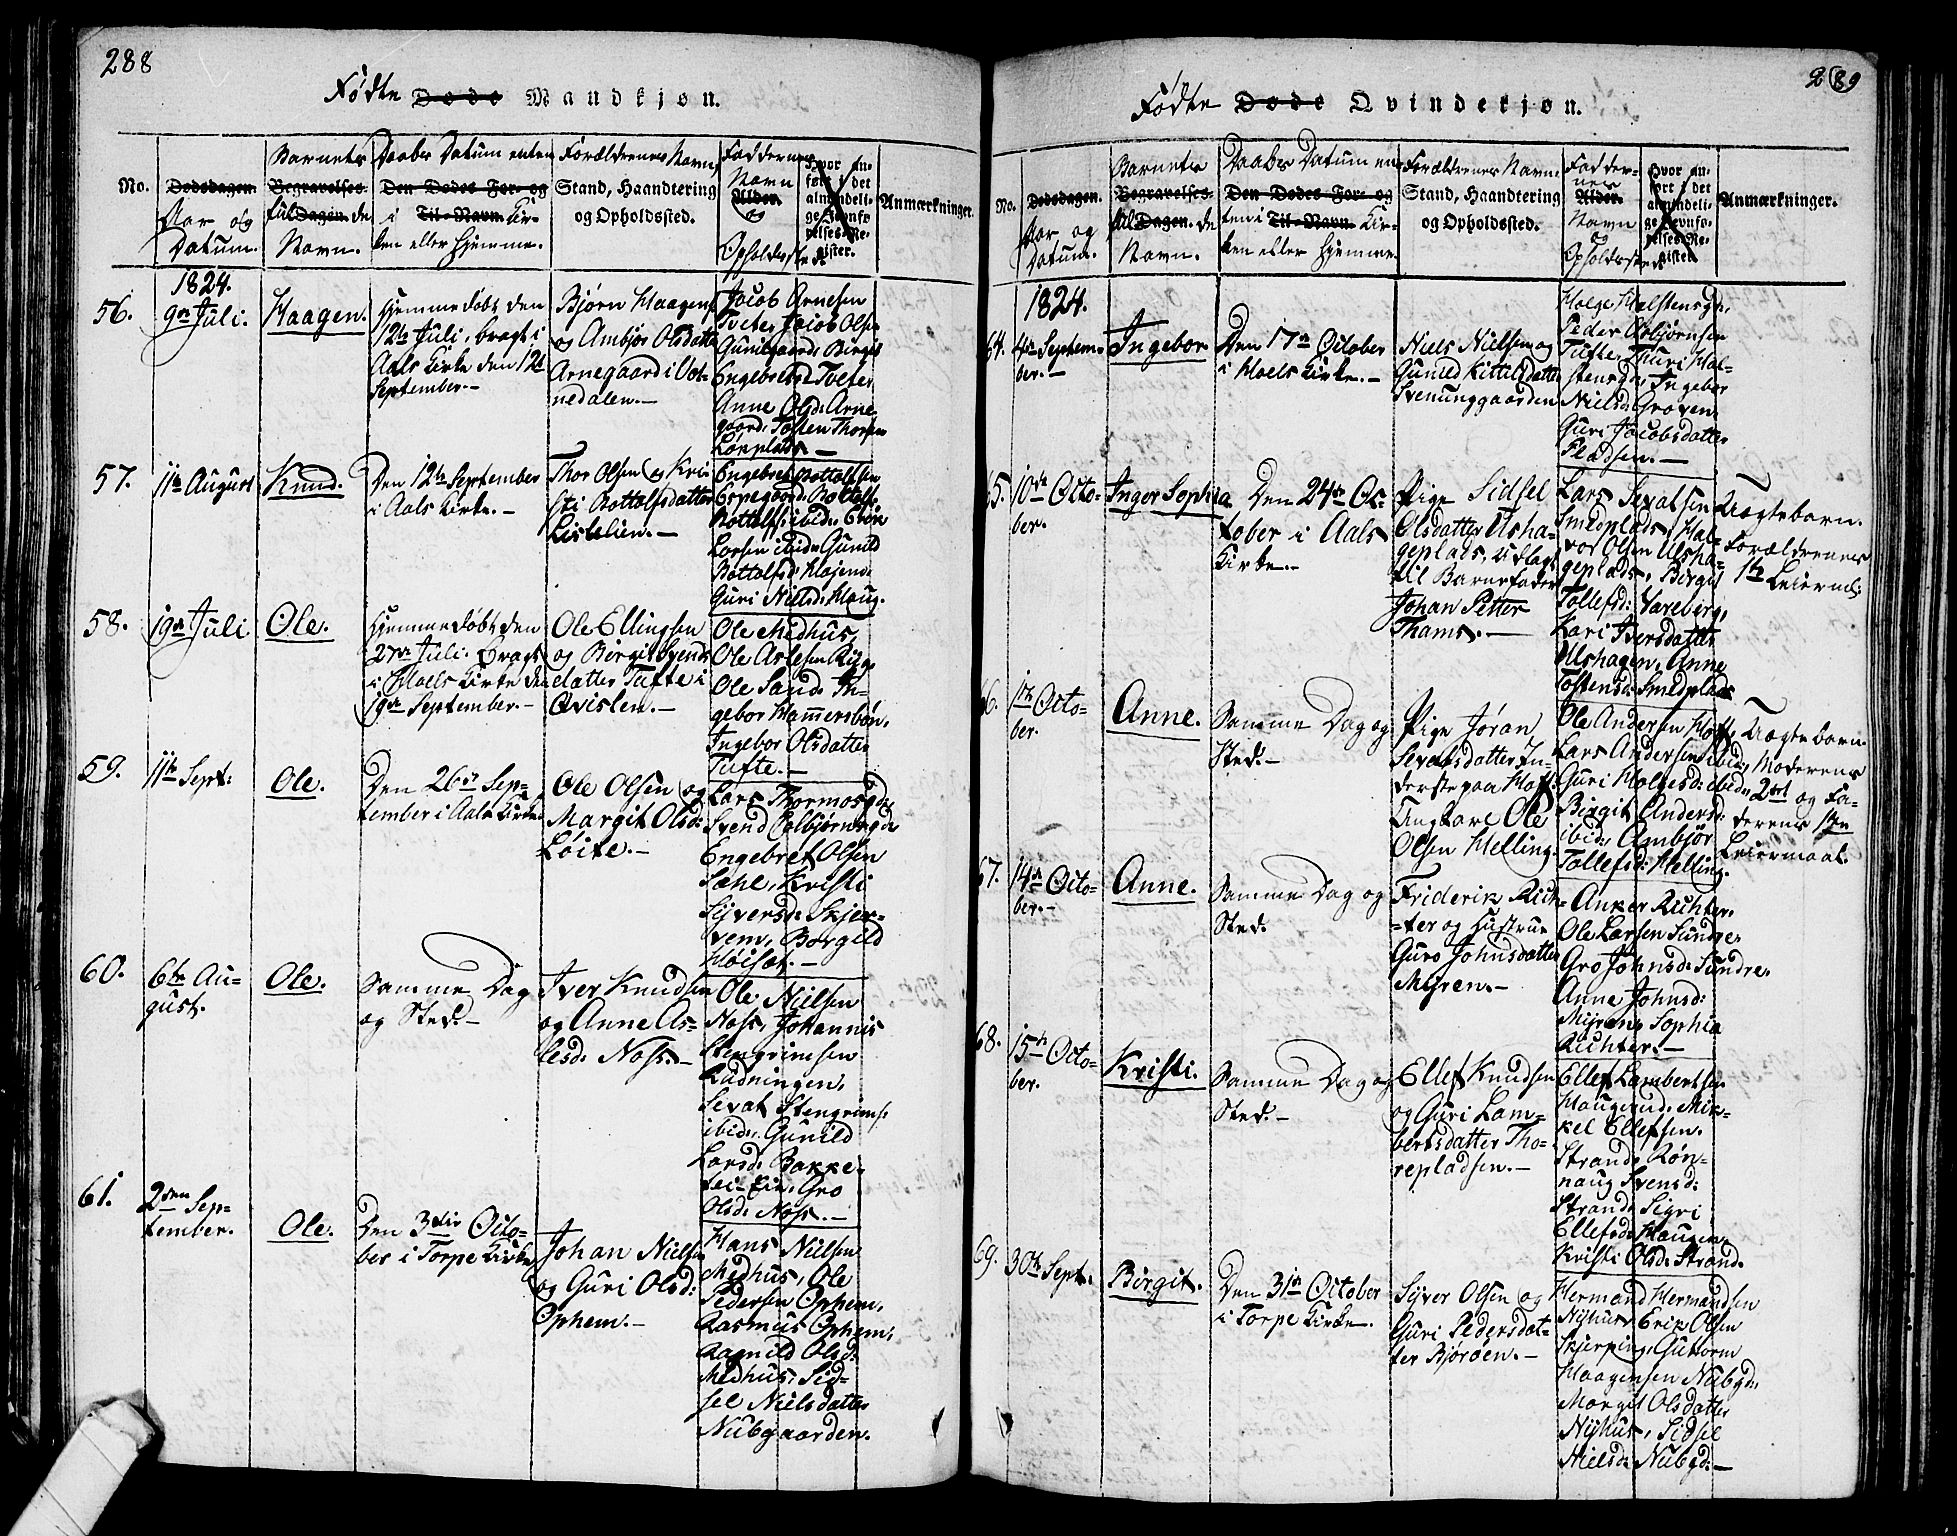 288
Fødte Døde Mandkjøn.
No.
Dødsdagen.
Aar og
Datum.
Barnets
Begravelses-
fulde Dagen.
Navn.
Daabs Datum enten
Den Dødes For- og
i Til-Navn. Kir-
ken eller Hjemme.
Forældrenes Navn,
Stand, Haandtering
og Opholdssted.
Faddernes
Navn
Alder.
og
Opholdssted.
Hvor an-
ført i det
almindeli-
ge Jevnfø-
relses-Re-
gister.
Anmærkninger.
1824.
56.
9de Juli.
Haagen.
Hjemmedøbt den
12te Juli, bragt i
Aals Kirke den 12te
September.-
Bjørn Haagens.
og Ambjør Olsdatter
Arnegaard i Vot-
nedalen.-
Jacob Arnesen
Tveter Jacob Olsen
Gunilgaard, Birgit
Engebretsd: Tveter
Anne Olsd: Arne-
gaard, Tosten Thorsen
57.
11te August
Knud.
Den 12te September
i Aals Kirke.-
Thor Olsen og Kri-
sti Bottolfsdatter
Lislelien.-
Engebret Bottolfsen
Espegaard, Bottolf
Bottolfs: ibid: Erik
Larsen ibid: Gunild
Bottolfsd: Højend
Guri Nielsd: Haug.
58.
19de Juli
Ole.
Hjemmedøbt den
27de Juli. Bragt
i Hoels Kirke den
19de September.-
Ole Ellingsen
og Birgit Svends-
datter Tufte i
Qvislen.-
Ole Medhus,
Ole Aslesen Rue,
Ole Sand, In-
gebor Hammersbøn,
Ingebor Olsdatter
Tufte.-
59.
11te Sept:
Ole.
Den 26de Sep-
tember i Aals Kirke
Ole Olsen og
Margit Olsd:
Løite.-
Lars Thormosgd:
Svend Colbjørnsgd:
Engebret Olsen
Sæhl, Kristi
Siversd: Skjer-
vem, Borgild
Høisæt.-
60.
6te Au-
gust.
Ole.
Samme Dag
og Sted.-
Iver Knudsen
og Anne As-
lesd: Noss.-
Ole Nielsen
Noss, Johannis
Stengrimsen
Rudningen,
Sevat Stengrims:
ibid:, Gunild
Larsd: Bakke-
teigen, Gro
Olsd: Noss.-
61.
2den Sep-
tember.
Ole.
Den 3die Octo-
ber i Torpe Kirke
Johan Nielsen
og Guri Olsd:
Ophem.-
Hans Nielsen
Medhus, Ole
Pedersen Ophem,
Rasmus Ophem,
Ragnild Olsd:
Medhus, Sid-
sel Nielsdatter
Nubgaarden.
289
Fødte Døde Qvindekjøn.
No.
Dødsdagen.
Aar og
Datum.
Barnets
Begravelses-
fulde Dagen.
Navn.
Daabs Datum en-
Den Dødes For- og
ten i Til-Navn. Kir-
ken eller Hjemme.
Forældrenes Navn
Stand, Haandtering
og Opholdssted.
Fadder-
nes
Alder.
Navn
og
Opholdssted
Hvor an-
ført i det
almindeli-
ge Jevnfø-
relses-Re-
gister.
Anmærkninger.
1824.
64.
4de Septem-
ber.-
Ingebor
Den 17de October
i Hoels Kirke.-
Niels Nielsen og
Gunild Kittelsdatter
Svenunggaarden
Holge Halstensgd:
Peder Asbjørnsen
Tufte, Thuri Hal-
stensgd:, Ingebor
Nielsd: Groven
Guri Jacobsdatter
Pladsen.-
65.
10de Octo-
ber.
Inger Sophia
Den 24de Oc-
tober i Aals
Kirke.-
Pige Sidsel
Olsdatter Ulsha-
geplads, udlagt
til Barnefader
Johan Petter
Thams.-
Lars Sevatsen
Smedplads, Hal-
vor Olsen Ulsha-
geplads, Birgit
Tollefsd: Vareberg,
Kari Iversdatter
Ulshagen, Anne
Tostensd: Smedplads
Uægte barn.
Forældrenes
1te Leierml:
66.
1te Octo-
ber.
Anne.
Samme Dag og
Sted.-
Pige Jøran
Sevatsdatter In-
derste paa Hoft
Ungkarl Ole
Olsen Helling.
Ole Andersen Hoft,
Lars Andersen ibid:,
Guri Holgesd: ibid:,
Birgit Andersd:
ibid:, Ambjør
Tollefsd: Helling.
Uægte barn.
Moderens
2det og Fa-
derens 1te
Leiermaal.
67.
14de Octo-
ber.-
Anne.
Samme Dag og
Sted.
Friderik Rich-
ter og Hustrue
Guro Johnsdatter
Myren.-
Anker Richter,
Ole Larsen Sundre,
Gro Johnsd: Sundre,
Anne Johnsd:
Myren, Sophia
Richter.-
68.
15de Octo-
ber.
Kristi.
Samme Dag og
Sted.-
Ellef Knudsen
og Guri Lam-
bertsdatter Tho-
repladsen.-
Ellef Lambertsen
Haugerud, Mik-
kel Ellefsen
Strand, Røn-
naug Svensd:
Strand, Sigri
Ellefsd: Haugen,
Kristi Olsd: Strand.
69.
30te Sept.
Birgit.
Den 31te October
i Torpe Kirke.
Syver Olsen og
Guri Pedersdat-
ter Bjørøen.-
Hermand Hermandsen
Nyhus, Erik Olsen
Skjerping, Guttorm
Haagensen Nubgd:,
Margit Olsdatter
Nyhus, Sidsel
Nielsd: Nubgd:-